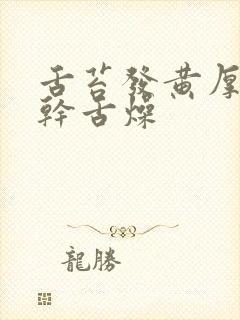 舌苔發黃厚
幹舌燥
龍勝